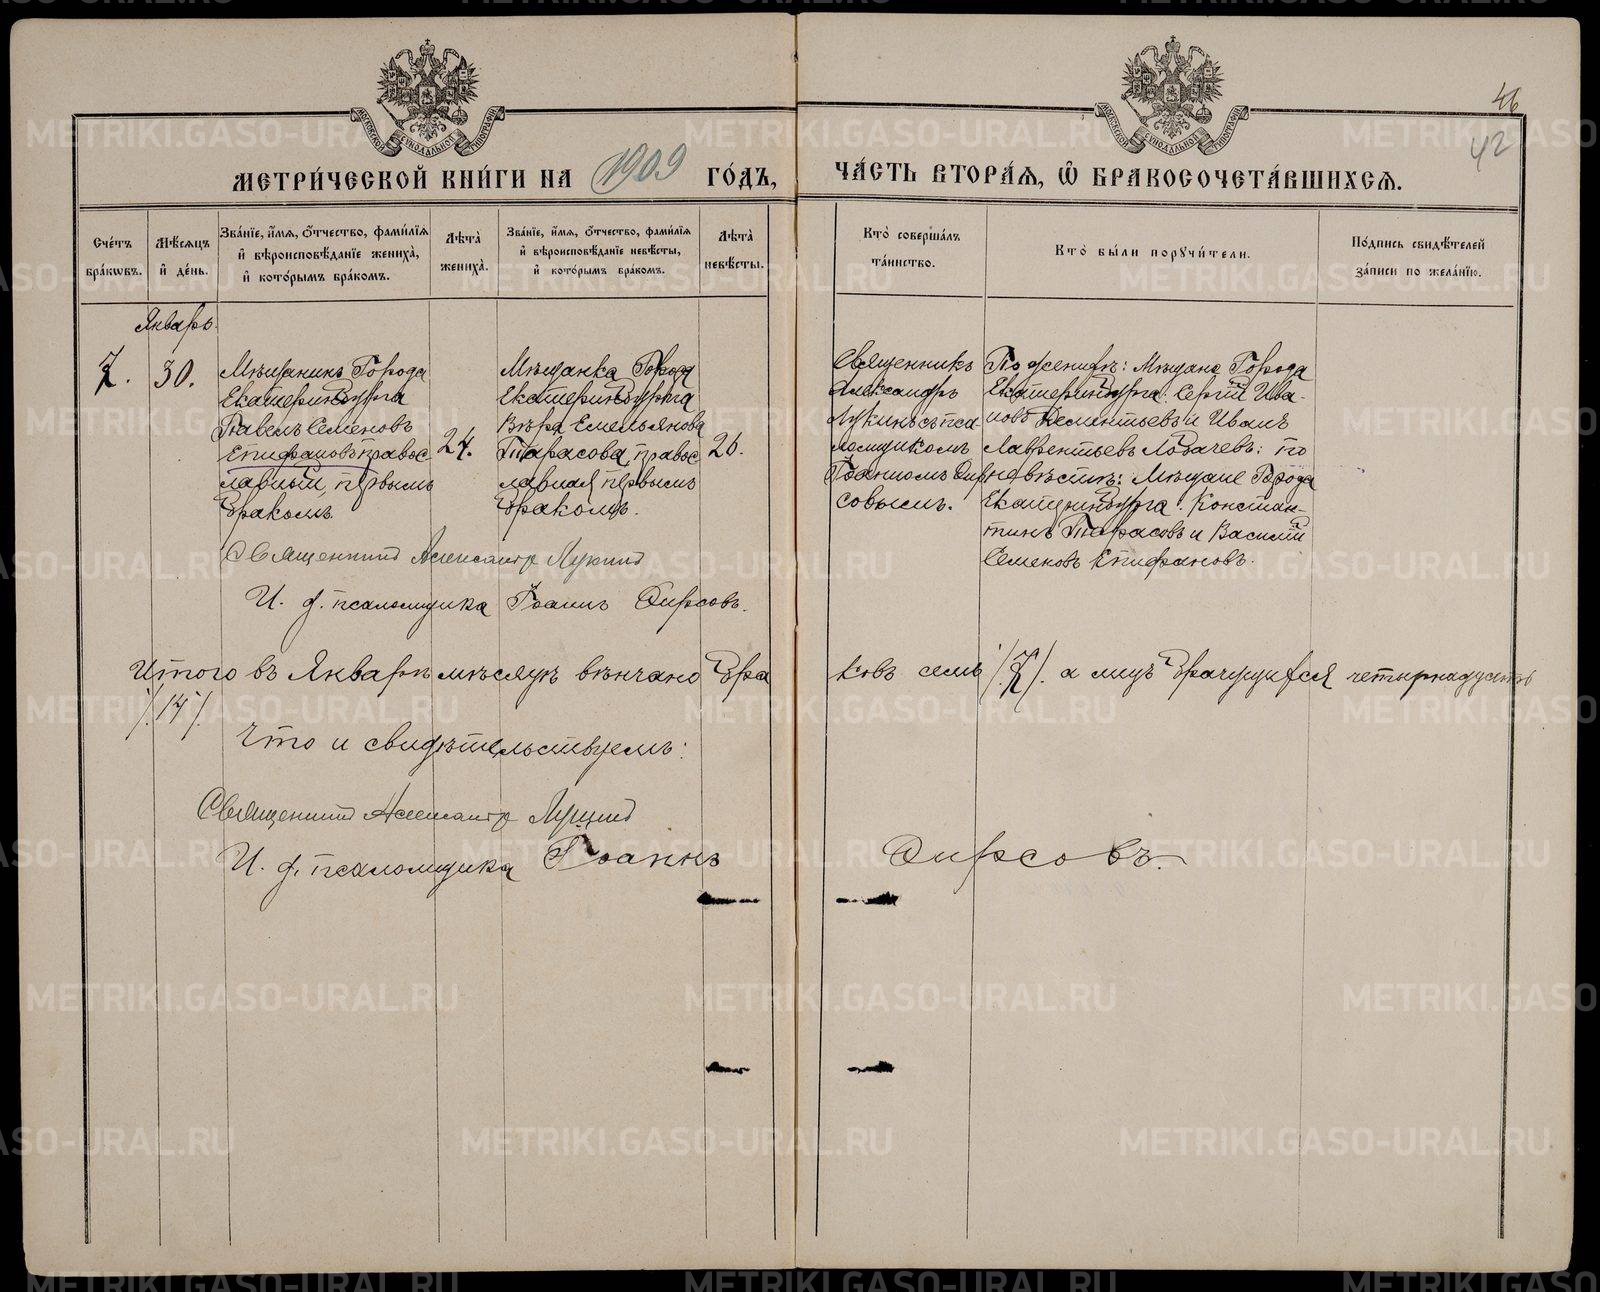 46
42
МЕТРИ́ЧЕСКОЙ КНИ́ГИ НА 1909 ГО́ДЪ,
ЧА́СТЬ ВТОРА́Я, Ѽ БРАКОСОЧЕТА́ВШИХСЯ.
Сче́тъ бра́кѡвъ.
Мѣ́сяцъ и҆ де́нь.
Зва́нїе, и҆́мя, ѻ҆́тчество, фами́лїя и҆ вѣроисповѣ́данїе жениха̀, и҆ кото́рымъ бра́комъ.
Лѣта̀ жениха̀.
Зва́нїе, и҆́мя, ѻ҆́тчество, фами́лїя и҆ вѣроисповѣ́данїе невѣ́сты, и҆ кото́рымъ бра́комъ.
Лѣта̀ невѣ́сты.
Кто̀ соверша́лъ та́инство.
Кто̀ бы́ли порꙋчи́тели.
По́дпись свидѣ́телей за́писи по жела́нїю.
Январь.
7.
30.
Мѣщанинъ Города
Екатеринбурга
Павелъ Семеновъ
Епифановъ правос
лавный, первымъ
бракомъ.
24.
Мѣщанка Города
Екатеринбурга
Вѣра Емельянова
Тарасова, правос
лавная первымъ
бракомъ.
20.
Священникъ
Александръ
Лукинъ съ пса
ломщикомъ
Іоанномъ Фир
совымъ.
По женихѣ: Мѣщане Города
Екатеринбурга: Сергій Ива-
новъ Дементьевъ и Иванъ
Лаврентьевъ Лобачевъ: по
невѣстѣ: Мѣщане Города
Екатеринбурга: Констан-
тинъ Тарасовъ и Василій
Семеновъ Епифановъ.
Священникъ Александръ Лукинъ
И. д. псаломщика Іоаннъ Фирсовъ.
Итого въ Январѣ мѣсяцѣ вѣнчано бра
ковъ семь /7/. а лицъ брачущихся четырнадцать
/14/.
Что и свидѣтельствуемъ:
Священникъ Александръ Лукинъ
И. д. псаломщика Іоаннъ
Фирсовъ.
METRIKI.GASO-URAL.RU